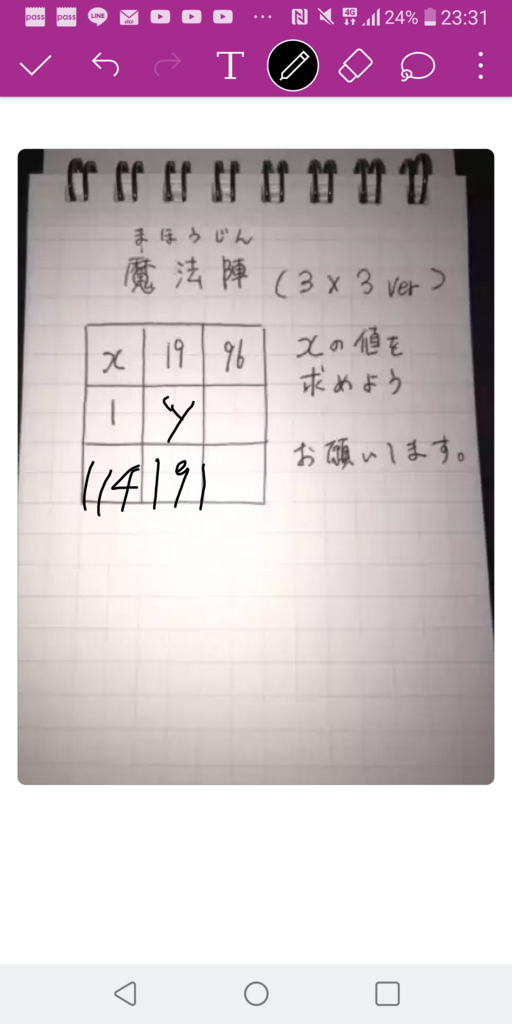 pass pass LINE 4G 24% 23:31
T
まほうじん
魔法陣 (3×3 ver)
x 19 96
1 y
114 191
xの値を
求めよう
お願いします。